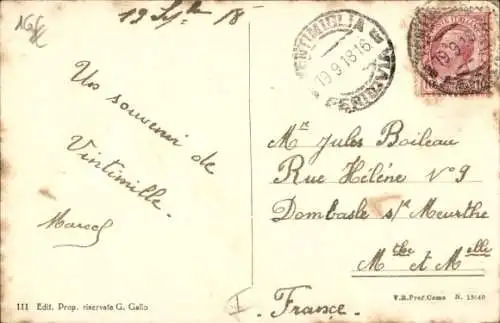 19 S/bre 18
Un souvenir de
Vintimille.
Marcel
III Edit. Prop. riservata G. Gallo
VENTIMIGLIA
19.9.18.16
19.9.18
Mr Jules Boileau
Rue Hélène No 9
Dombasle s/r Meurthe
Mthe et Melle
I. France.
V.B.Prof.Como N. 13640